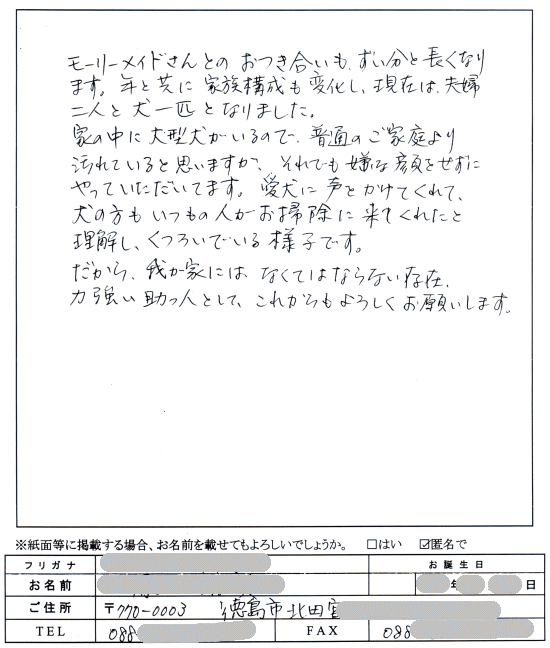 モーリーメイドさんとの おつき合いも、ずい分と長くなり
ます。年と共に 家族構成も変化し、現在は、夫婦
二人と犬一匹となりました。
家の中に大型犬がいるので、普通のご家庭より
汚れていると思いますが、それでも嫌な顔をせずに
やっていただいてます。愛犬に声をかけてくれて、
犬の方もいつもの人がお掃除に来てくれたと
理解し、くつろいでいる様子です。
だから、我が家には、なくてはならない存在、
力強い助っ人として、これからもよろしくお願いします。
※紙面等に掲載する場合、お名前を載せてもよろしいでしょうか。 □はい ☑匿名で
フリガナ お誕生日
お名前 年 日
ご住所 〒770-0003 徳島市北田宮
TEL 088 FAX 088